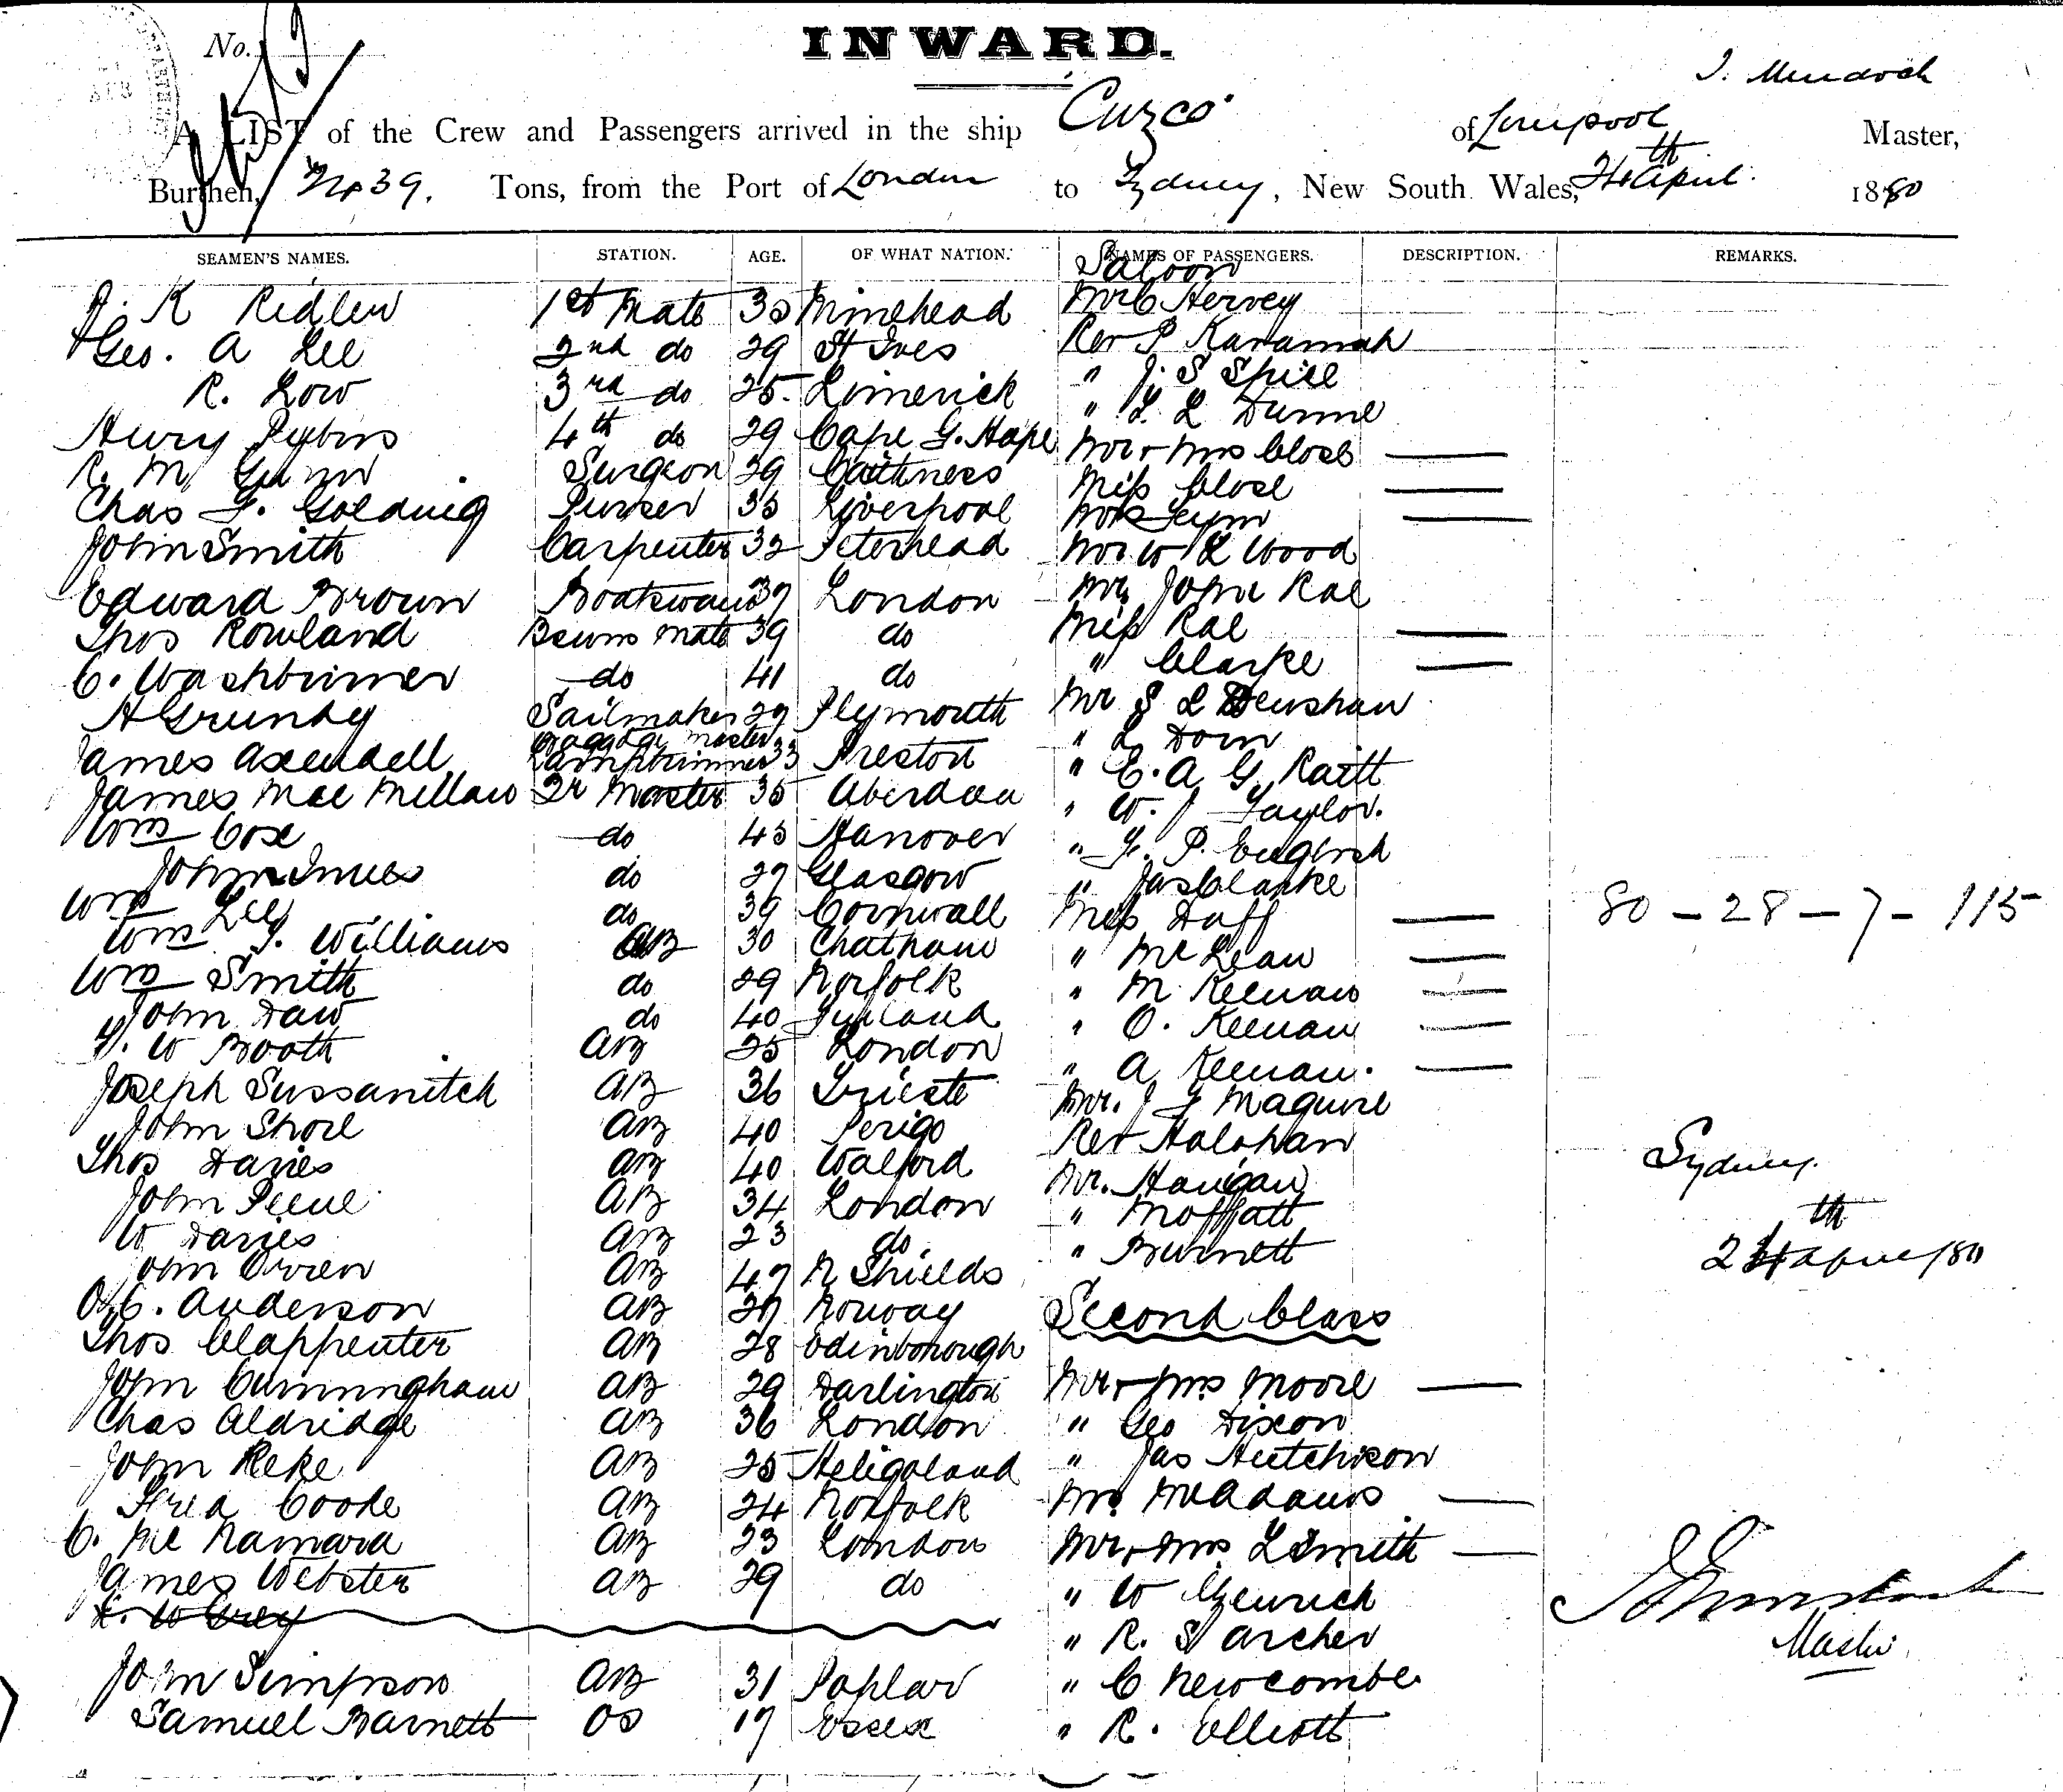 No.
INWARD.
J. Murdoch
A LIST of the Crew and Passengers arrived in the ship Cuzco of Liverpool Master,
Burthen, 2439. Tons, from the Port of London to Sydney, New South Wales, April 1880
SEAMEN'S NAMES. STATION. AGE. OF WHAT NATION. NAMES OF PASSENGERS. DESCRIPTION. REMARKS.
Saloon
K Ridler 1st Mate 30 Minehead Mr C Hervey
Geo. A Lee 2nd do 29 St Ives Rev P Kavanah
R. Low 3rd do 25 Limerick " J. S Spill
Henry Pybus 4th do 29 Cape G. Hope " L. L Dunne
R. M Gunn Surgeon 29 Caithness Mr + Mrs Close
Chas F. Golding Purser 35 Liverpool Miss Close
John Smith Carpenter 32 Peterhead Mr W L Wood
Edward Brown Boatswain 37 London Mr John Rae
Thos Rowland Bsuns Mate 39 do Miss Rae
C. Washbrimer do 41 do " Clarke
A Grundy Sailmaker 29 Plymouth Mr S L Henshaw
James Axendell Baggage master Lamptrimmer 33 Preston " L Dorn
" E. A G Raitt
James Mac Millan Qr Master 35 Aberdeen " W. J Taylor.
Wm Cox do 43 Hanover " F. P. English
John Innes do 27 Glasgow " Jas Clarke
Wm Lee do 39 Cornwall Miss Duff
80 - 28 - 7 - 115
Wm J. Williams AB 30 Chatham " Mc Lean
Wm Smith do 29 Norfolk " M Keenan
John Daw do 40 " O. Keenan
W Booth AB 25 London " A Keenan.
Joseph Sussanitch AB 36 Trieste Mr. J F Maguire
John Shore AB 40 Perigo Rev Halohan
Thos Davies AB 40 Walford Mr. Hanigan
Sydney.
John Peene AB 34 London " Moffatt
W Davies AB 23 do " Burnett
24th April /80
John Orren AB 47 N Shields
O. C. Anderson AB 27 Norway Second Class
Thos Clappenter AB 28 Edinborough
John Cunningham AB 29 Darlington Mr + Mrs Moore
Chas Aldridge AB 36 London " Geo Dixon
John Reke AB 25 Heligoland " Jas Hutchison
Fred Cooke AB 24 Norfolk Mrs McAdams
C. Mc Namara AB 23 London Mr + Mrs L Smith
James Webster AB 29 do " W Heinrich
W Grey
" R. S Archer
J Murdoch
Master
John Simpson AB 31 Poplar " C Newcombe
Samuel Barnett OS 17 Essex " R. Elliott